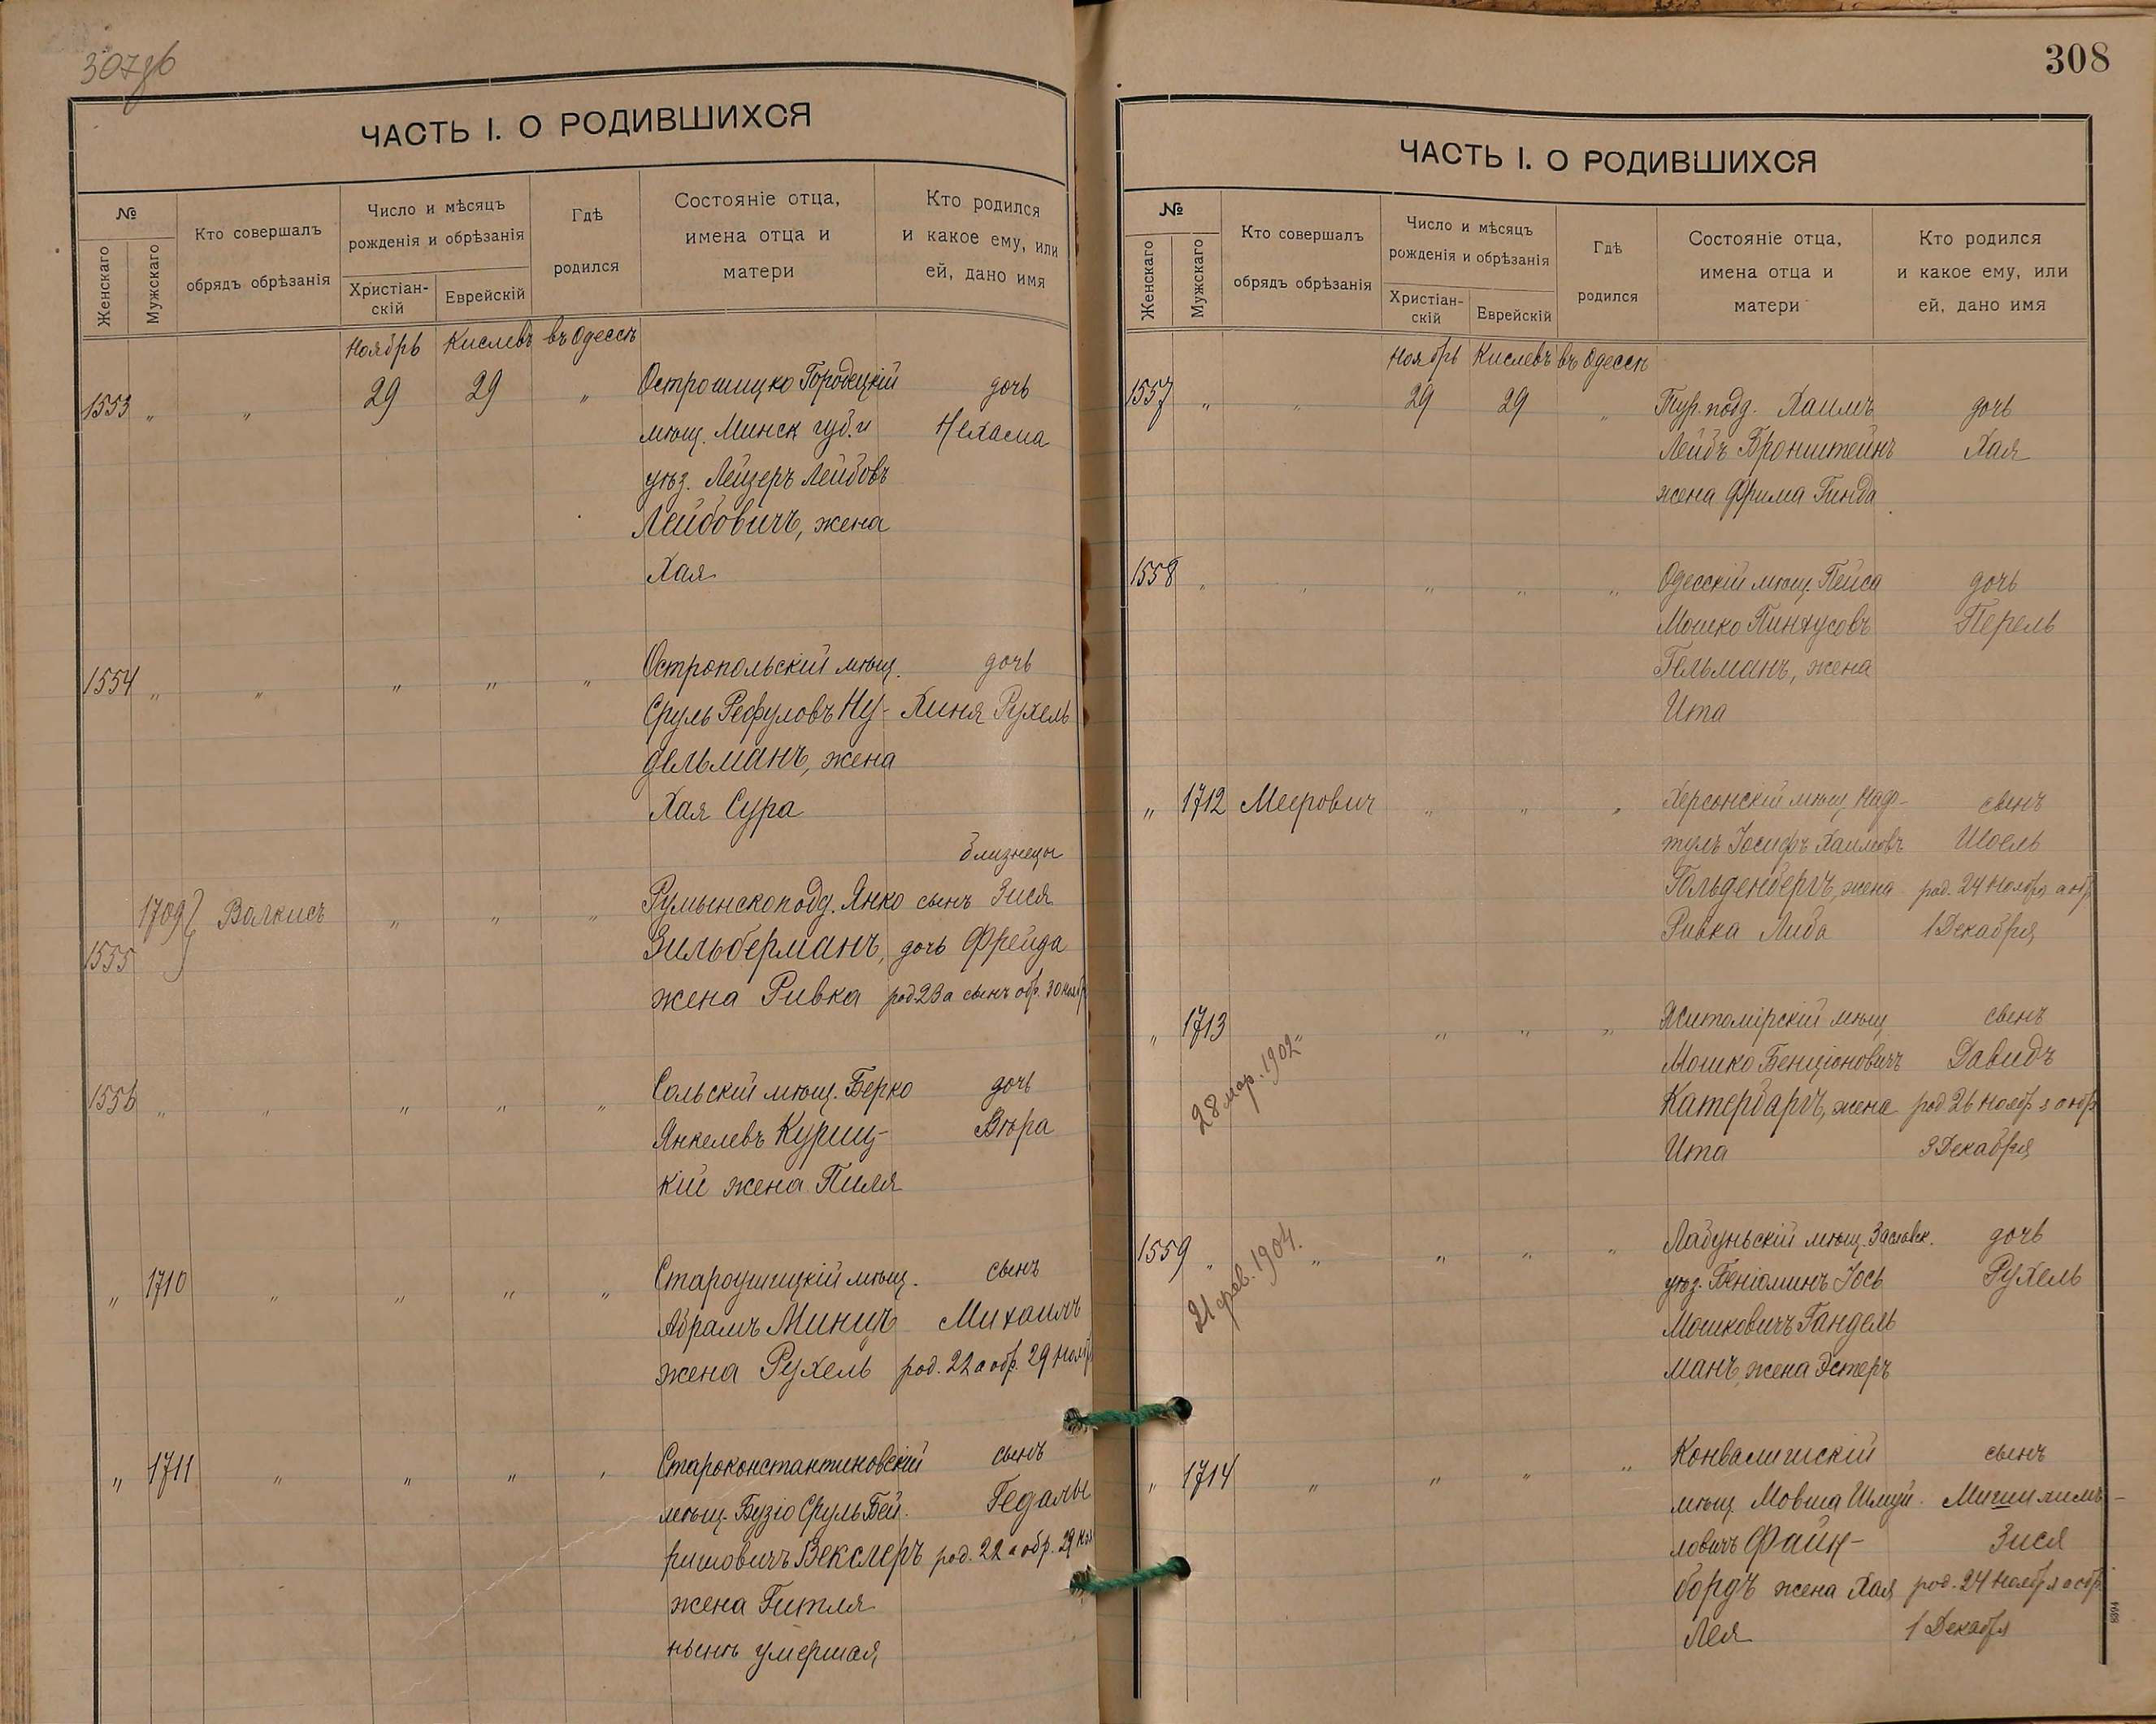 307 об
ЧАСТЬ I. О РОДИВШИХСЯ
№
Женскаго
Мужскаго
Кто совершалъ
обрядъ обрѣзанія
Число и мѣсяцъ
рожденія и обрѣзанія
Христіан-
скій
Еврейскій
Гдѣ
родился
Состояніе отца,
имена отца и
матери
Кто родился
и какое ему, или
ей, дано имя
Ноябрь Кислевъ въ Одессѣ
1553 " " 29 29 " Острошицко Городецкій дочь
мѣщ. Минск губ. и Нехама
уѣз. Лейзеръ Лейбовъ
Лейбовичъ, жена
Хая
1554 " " " " " Остропольскій мѣщ. дочь
Сруль Рефуловъ Ну- Хиня Рухель
дельманъ, жена
Хая Сура
близнецы
1709 Волкисъ " " " Румынскопод. Янко сынъ Зися
1555 Зильберманъ, дочь Фрейда
жена Ривка род. 23 а сынъ обр. 30 ноябр
1556 " " " " " Сольскій мѣщ. Берко дочь
Янкелевъ Куриц- Вѣра
кій жена Пиля
" 1710 " " " " Староушицкій мѣщ. сынъ
Абрамъ Минцъ Михаилъ
жена Рухель род. 22 а обр. 29 Нояб
" 1711 " " " " Староконстантиновскій сынъ
мѣщ. Бузіо Сруль Бей- Гедалы
ришовичъ Векслеръ род. 22 а обр. 29 Ноя
жена Гитля
нынѣ умершая
308
ЧАСТЬ I. О РОДИВШИХСЯ
№
Женскаго
Мужскаго
Кто совершалъ
обрядъ обрѣзанія
Число и мѣсяцъ
рожденія и обрѣзанія
Христіан-
скій
Еврейскій
Гдѣ
родился
Состояніе отца,
имена отца и
матери
Кто родился
и какое ему, или
ей, дано имя
Ноябрь Кислевъ въ Одессѣ
1557 " " 29 29 " Тур. подд. Хаимъ дочь
Лейбъ Бронштейнъ Хая
жена Фрима Гинда
1558 " " " " " Одесскій мѣщ. Пейса дочь
Мошко Пинхусовъ Перель
Гельманъ, жена
Ита
" 1712 Меерович " " " Херсонскій мѣщ. Наф- сынъ
тулъ Іосифъ Хаимовъ Шоель
Гольденбергъ, жена род. 24 Ноября а обр
Ривка Либа 1 Декабря
" 1713 " " " Житомірскій мѣщ сынъ
28 мар. 1902 Мошко Бенціоновичъ Давидъ
Катербаргъ, жена род 26 Ноябр а обр
Ита 3 Декабря
1559 " " " " " Лабуньскій мѣщ. Заславск. дочь
21 фев. 1904. уѣз. Беніаминъ Іось Рухель
Мошковичъ Гандель
манъ, жена Эстеръ
" 1714 " " " " Конвалишскій сынъ
мѣщ. Мовша Шмуй-
ловичъ Файн- Зися
бордъ жена Хая род. 24 Ноября а обр
Лея 1 Декабря
8394